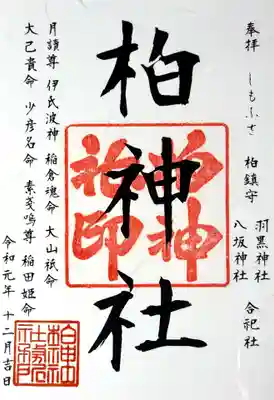 奉拝 しもふさ 柏鎮守 羽黒神社 合祀社
八坂神社
柏神社
月讀尊 伊氐波神 稲倉魂命 大山祇命
大己貴命 少彦名命 素戔嗚尊 稲田姫命
令和元年 十二月吉日